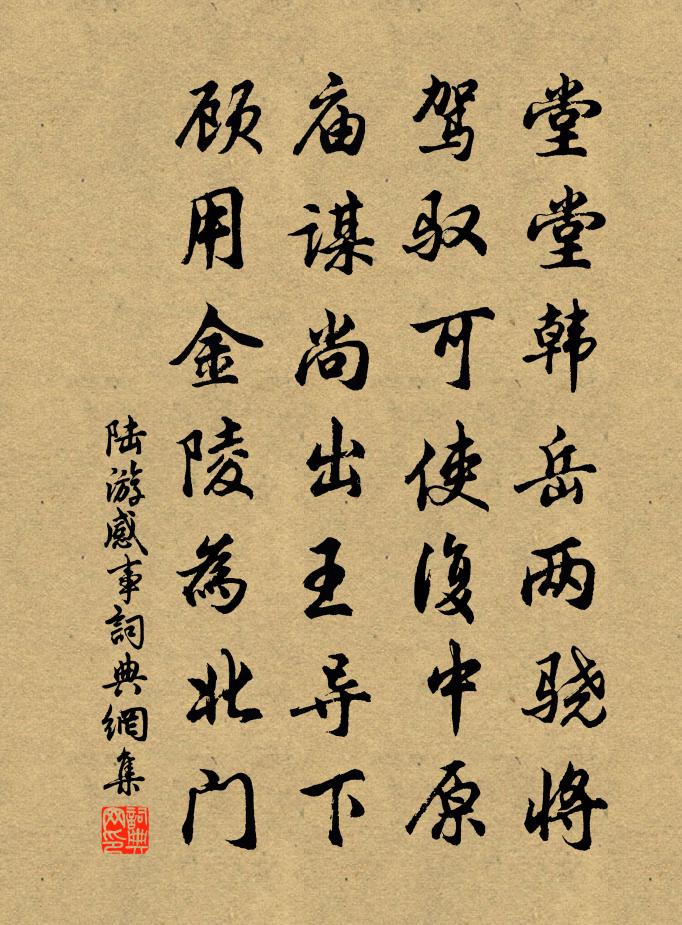 堂堂韩岳两骁将
驾驭可使復中原
庙谋尚出王导下
顾用金陵為北门
陆游感事詞典網集
詞典网印